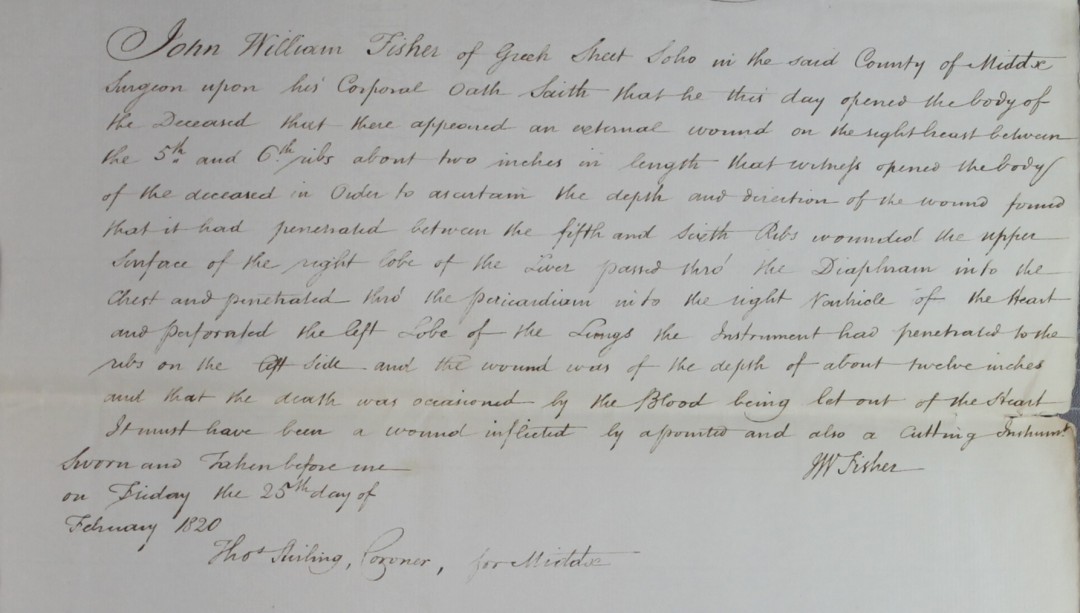 John William Fisher of Greek Street Soho in the said County of Middx
Surgeon upon his Corporal Oath Saith that he this day opened the body of
the Deceased that there appeared an external wound on the right breast between
the 5th and 6th ribs about two inches in length that witness opened the body
of the deceased in Order to ascertain the depth and direction of the wound found
that it had penetrated between the fifth and Sixth Ribs wounded the upper
Surface of the right lobe of the Liver passed thro' the Diaphram into the
Chest and penetrated thro the pericardium into the right Ventricle of the Heart
and perforated the left Lobe of the Lungs the Instrument had penetrated to the
ribs on the left Side and the wound was of the depth of about twelve inches
and that the death was occasioned by the Blood being let out of the Heart
It must have been a wound inflicted by a pointed and also a Cutting Instrumt
Sworn and Taken before me
JW Fisher
on Friday the 25th day of
February 1820
Thos Stirling, Coroner, for Middx